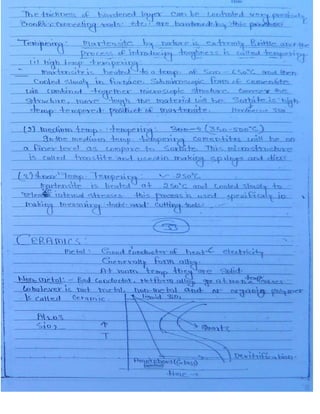 The thickness of hardened layer can be controlled very precisely
Crank, connecting rods, etc. are hardened by this process
Tempering: Martensite by nature is extremely Brittle and the
process of introducing toughness is called tempering
(1) high temp. tempering:
Martensite is heated to a temp. of 500 - 650°C and then
Cooled slowly in furnace. Submicroscopic
together microscopic structure. Coarser the
Structure, more tough the material will be. Sorbite is high
temp. tempered product of martensite.
(2) medium temp. tempering: (350-500°C)
In the medium temp. tempering Cementite will be on
a finer level as compare to Sorbite. This microstructure
is called troostite and used in making springs and dies
(3) Lower Temp. Tempering: ~ 250°C
Martensite is heated at 250°C and cooled slowly to
internal stresses. this process is used specifically in
making measuring tools and cutting tools.
CERAMICS:
Metal: Good conductor of heat & electricity
Generally form alloy.
At room temp they are Solid
Non-metal:- Bad conductor,
Whatever is not metal, non-metal and or organic polymer
is called Ceramic.
Al2O3
SiO2
T
Devitrification
time →